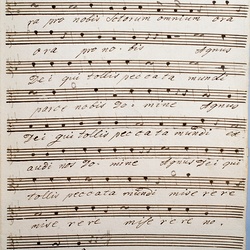 ra pro nobis Sctorum omnium ora
ora pro no. bis Agnus
Dei qui tollis peccata mundi
parce nobis Do. mine Agnus
Dei qui tollis peccata mundi ex
audi nos Do. mine Agnus Dei qui
tollis peccata mundi mise re re
mise re re mise re re no.